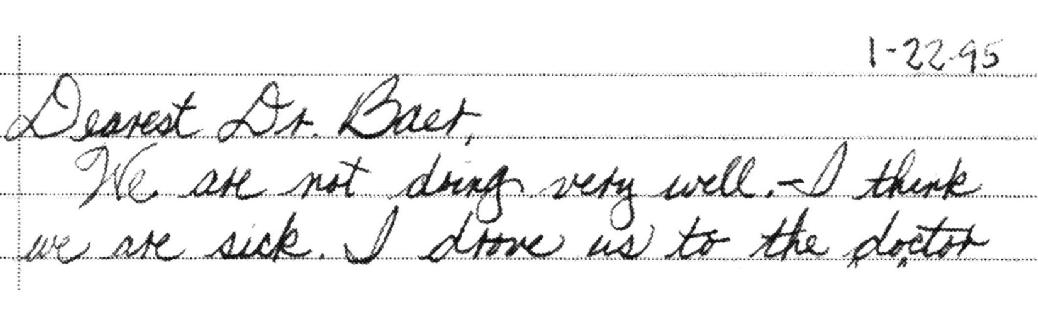 1-22-95
Dearest Dr. Baer,
We are not doing very well. - I think
we are sick. I drove us to the doctor